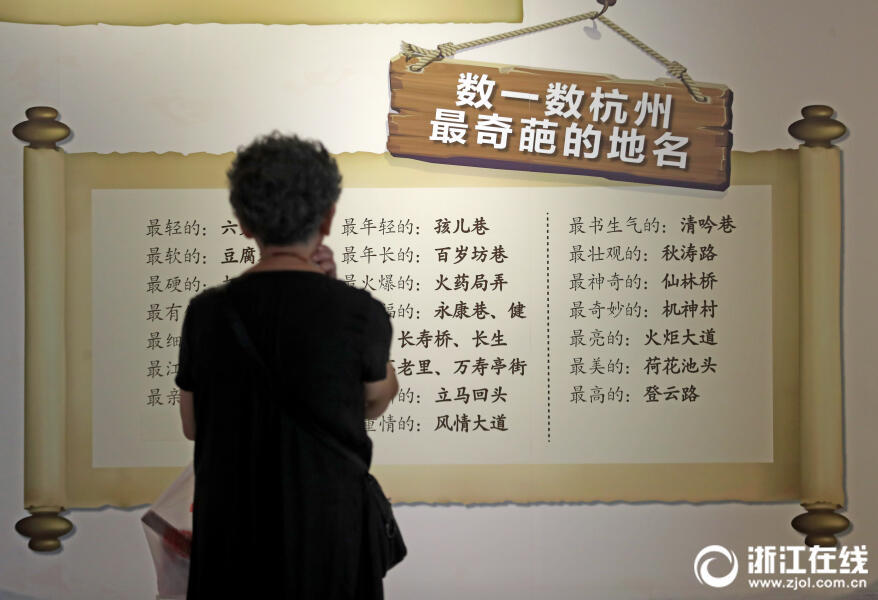 数一数杭州
最奇葩的地名
最轻的：六
最软的：豆腐
最硬的：
最有
最细
最江
最亲
最年轻的：孩儿巷
最年长的：百岁坊巷
最火爆的：火药局弄
的：永康巷、健
长寿桥、长生
老里、万寿亭街
的：立马回头
重情的：风情大道
最书生气的：清吟巷
最壮观的：秋涛路
最神奇的：仙林桥
最奇妙的：机神村
最亮的：火炬大道
最美的：荷花池头
最高的：登云路
浙江在线
www.zjol.com.cn